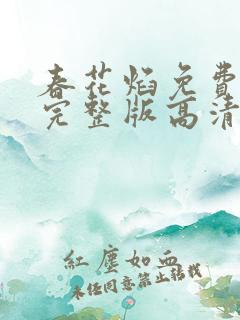 春花焰免費
完整版高清
紅塵如血
未经同意禁止转载